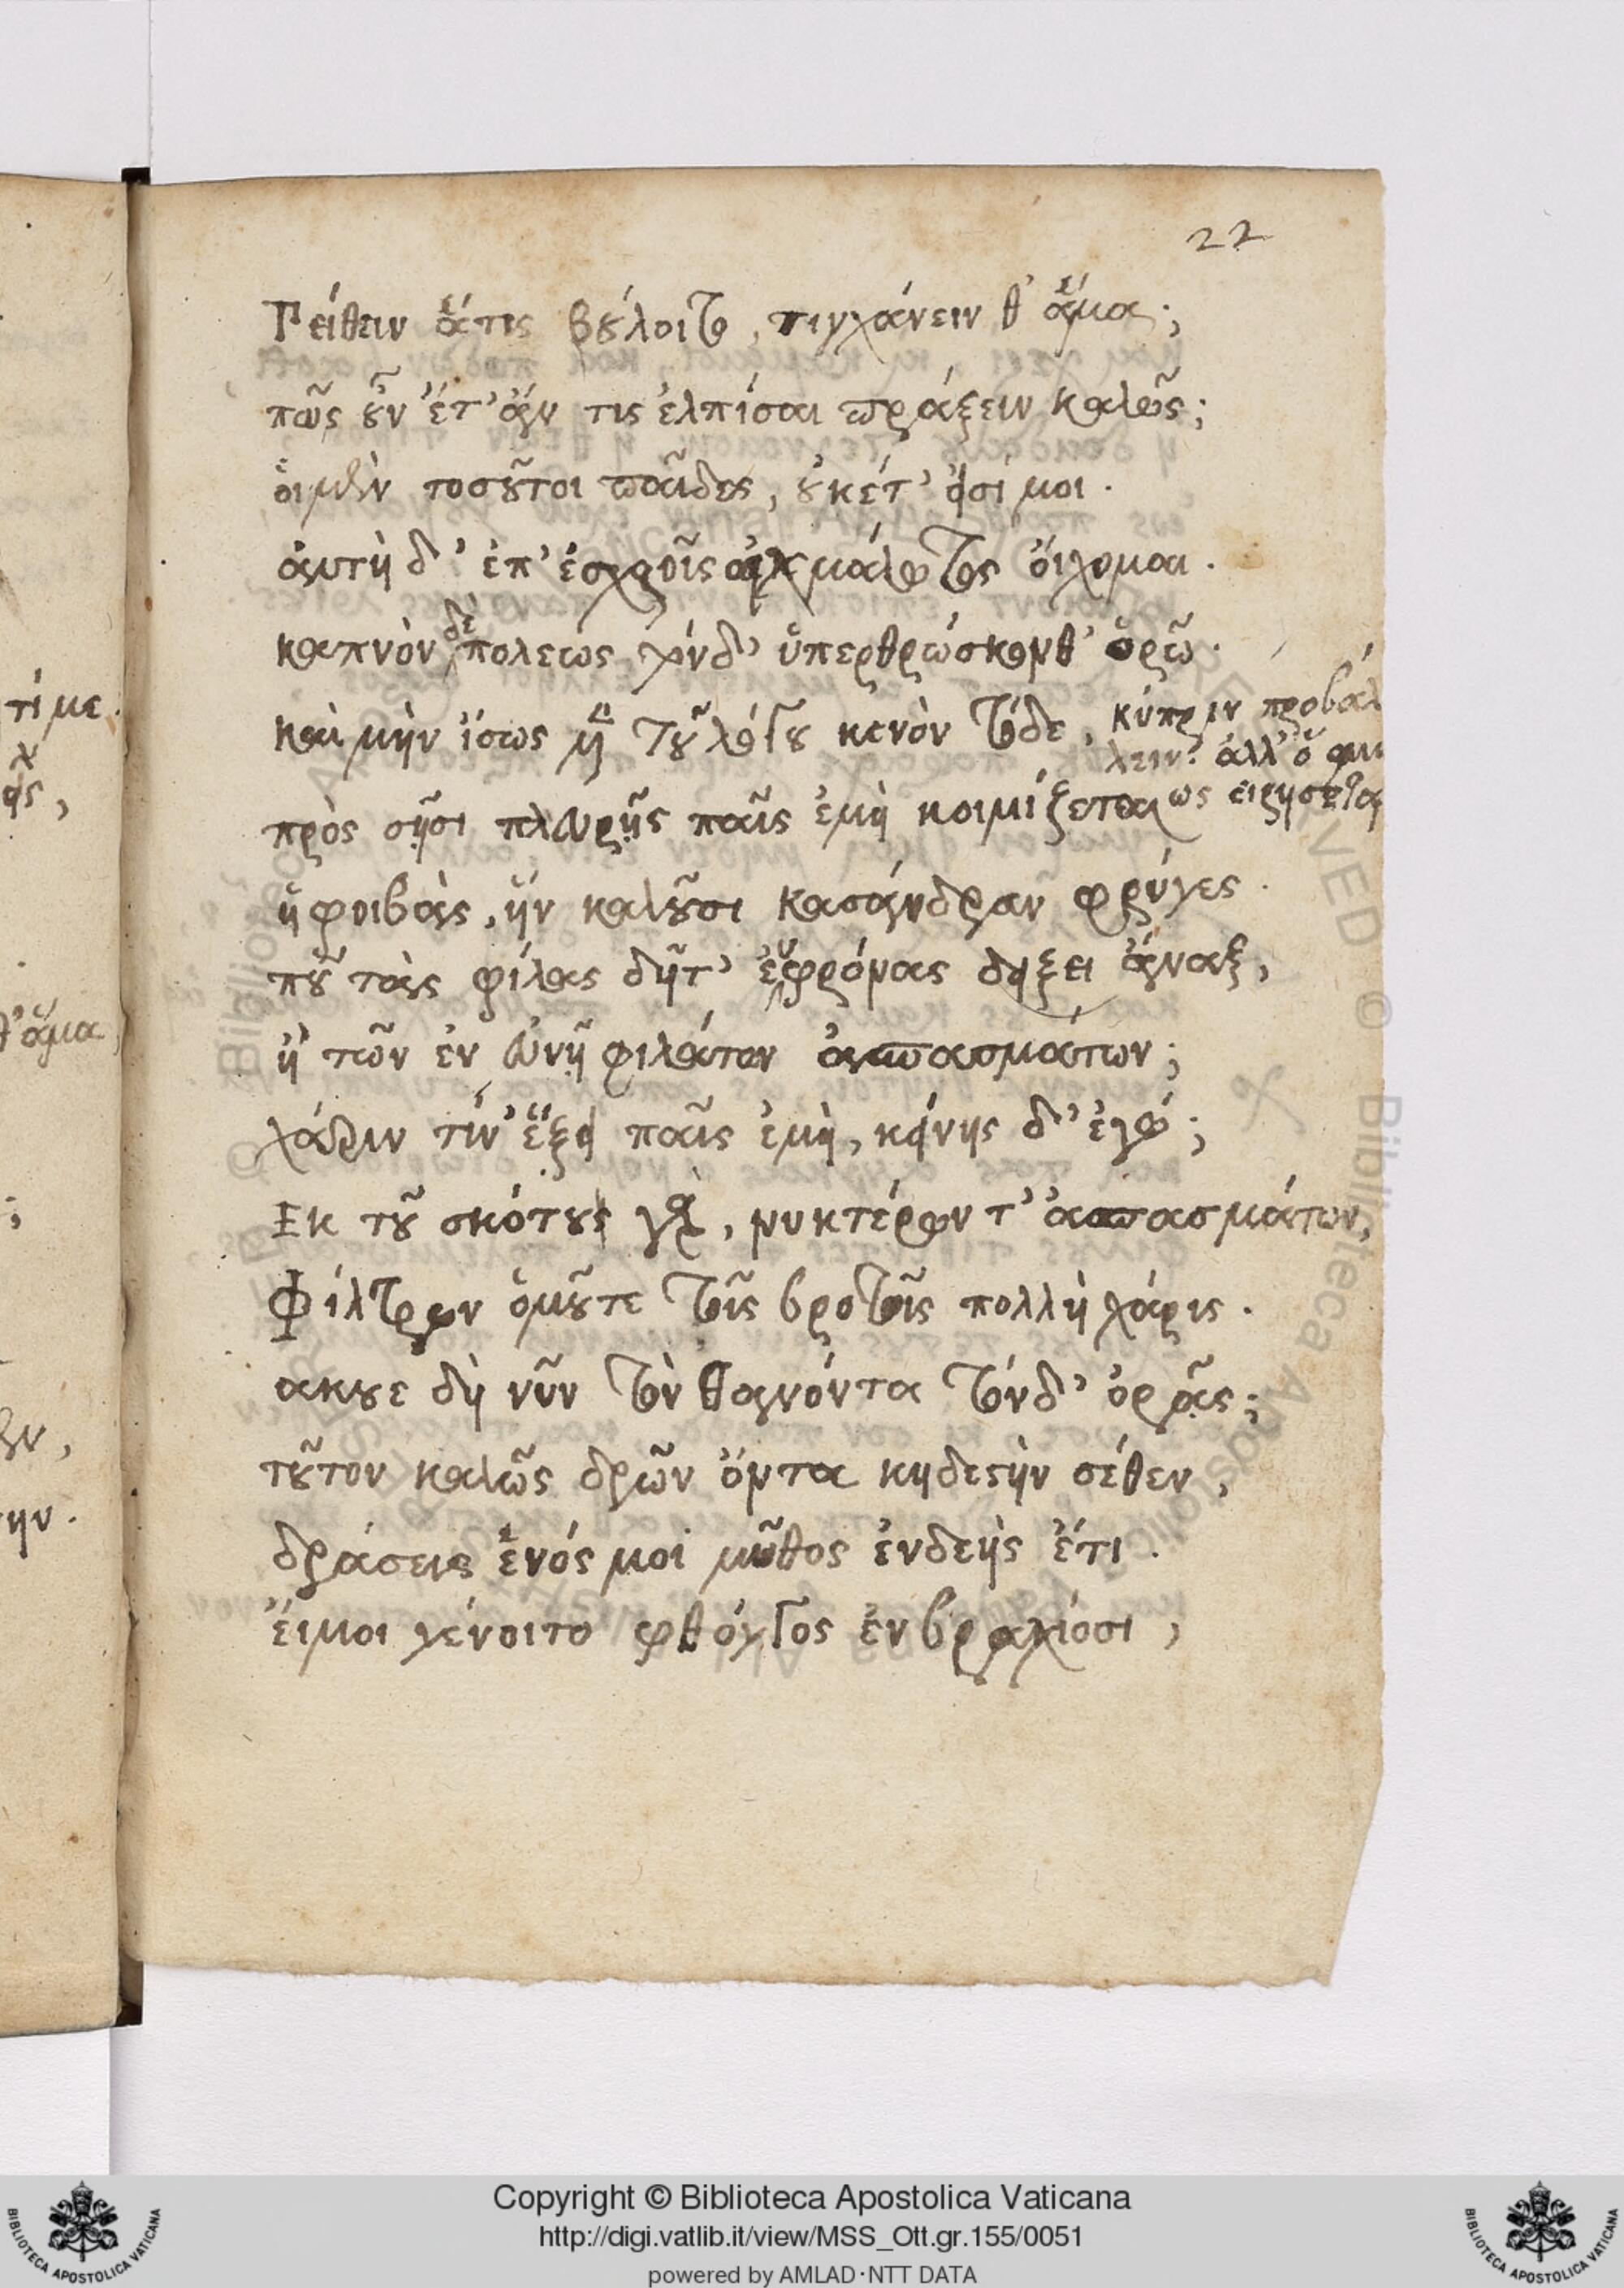 22
Πείθειν ἅ τις βούλοιτο, τυγχάνειν θ' ἅμα;
πῶς οὖν ἔτ' ἄν τις ἐλπίσαι πράξειν καλῶς;
οἱ μὲν τοσοῦτοι παῖδες, οὐκέτ' εἰσί μοι.
αὐτὴ δ' ἐπ' αἰχμάλωτος οἴχομαι.
καπνὸν δὲ πόλεως τόνδ' ὑπερθρώσκονθ' ὁρῶ.
καὶ μὴν ἴσως μὲν τοῦ λόγου κενὸν τόδε, κύπριν προβάλ
λειν· ἀλλ' ὅμως εἰρήσεται
πρὸς σῇσι πλευρῇς παῖς ἐμὴ κοιμίζεται
ἡ φοιβὰς, ἣν καλοῦσι κασάνδραν φρύγες.
ποῦ τὰς φίλας δῆτ' εὐφρόνας δείξει ἄναξ,
ἢ τῶν ἐν εὐνῇ φιλτάτων ἀσπασμάτων;
χάριν τίν' ἕξει παῖς ἐμὴ, κείνης δ' ἐγώ;
Εκ τοῦ σκότους γὰρ, νυκτέρων τ' ἀσπασμάτων,
Φίλτρων ὁμοῦτε τοῖς βροτοῖς πολλὴ χάρις.
ακουε δὴ νῦν τὸν θανόντα τόνδ' ὁρᾷς;
τοῦτον καλῶς δρῶν ὄντα κηδεστὴν σέθεν,
δράσεις ἑνός μοι μῦθος ἐνδεὴς ἔτι.
ἔιμοι γένοιτο φθόγγος ἐν βραχίοσι,
τί με.
θ' ἅμα
Copyright © Biblioteca Apostolica Vaticana
http://digi.vatlib.it/view/MSS_Ott.gr.155/0051
powered by AMLAD·NTT DATA
BIBLIOTECA APOSTOLICA VATICANA
BIBLIOTECA APOSTOLICA VATICANA